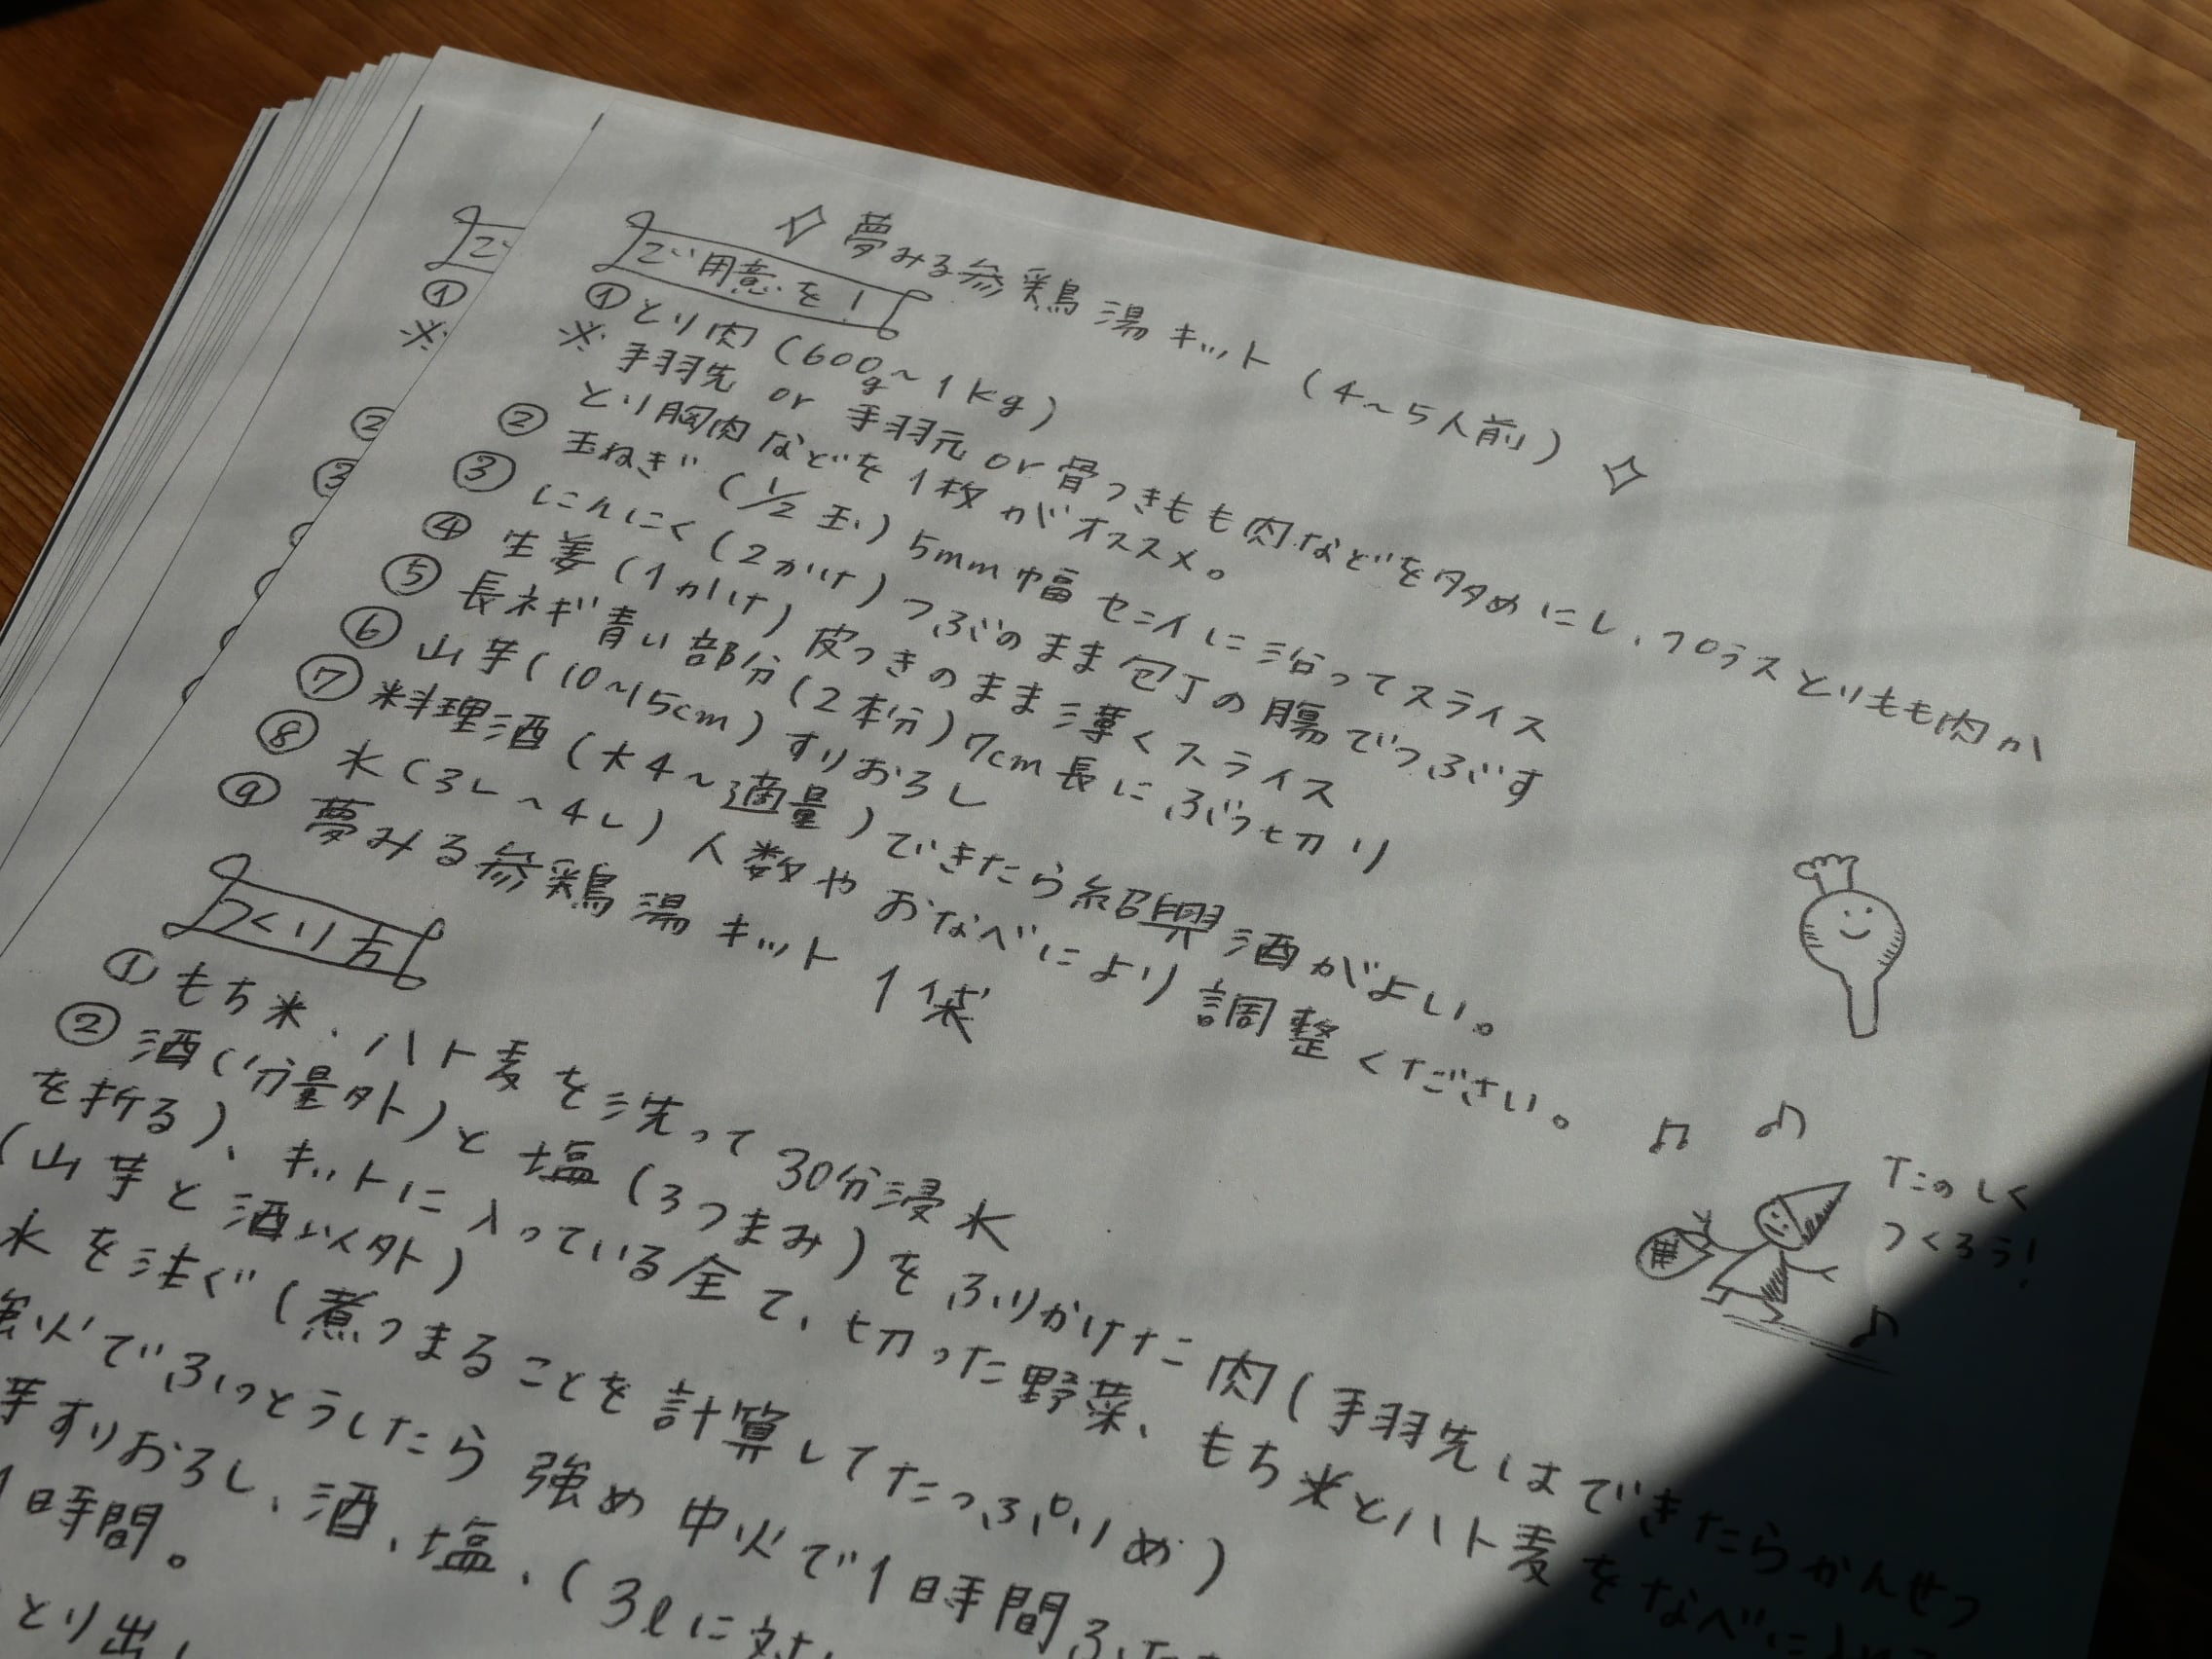 夢みる参鶏湯キット (4〜5人前)
ご用意を!
① とり肉 (600g〜1kg)
※ 手羽先 or 手羽元 or 骨つきもも肉などを多めにし、プラスとりもも肉か
とり胸肉などを1枚がオススメ。
② 玉ねぎ (1/2玉) 5mm幅 センイに沿ってスライス
③ にんにく (2かけ) つぶのまま包丁の腸でつぶす
④ 生姜 (1かけ) 皮つきのまま薄くスライス
⑤ 長ネギ青い部分 (2本分) 7cm長にぶつ切り
⑥ 山芋 (10〜15cm) すりおろし
⑦ 料理酒 (大4〜適量) できたら紹興酒がよい。
⑧ 水 (3L〜4L) 人数やおなべにより調整ください。
⑨ 夢みる参鶏湯キット 1袋
つくり方
① もち米、ハト麦を洗って30分浸水
② 酒 (分量外) と塩 (3つまみ) をふりかけた肉 (手羽先はできたらかんせつ
を折る)、キットに入っている全て、切った野菜、もち米とハト麦をなべに入れる
(山芋と酒以外)
水を注ぐ (煮つまることを計算してたっぷりめ)
強火でふっとうしたら強め中火で1時間ふた
芋すりおろし、酒、塩、(3ℓに対
1時間。
とり出し
たのしく
つくろう!
ご
①
※
②
③